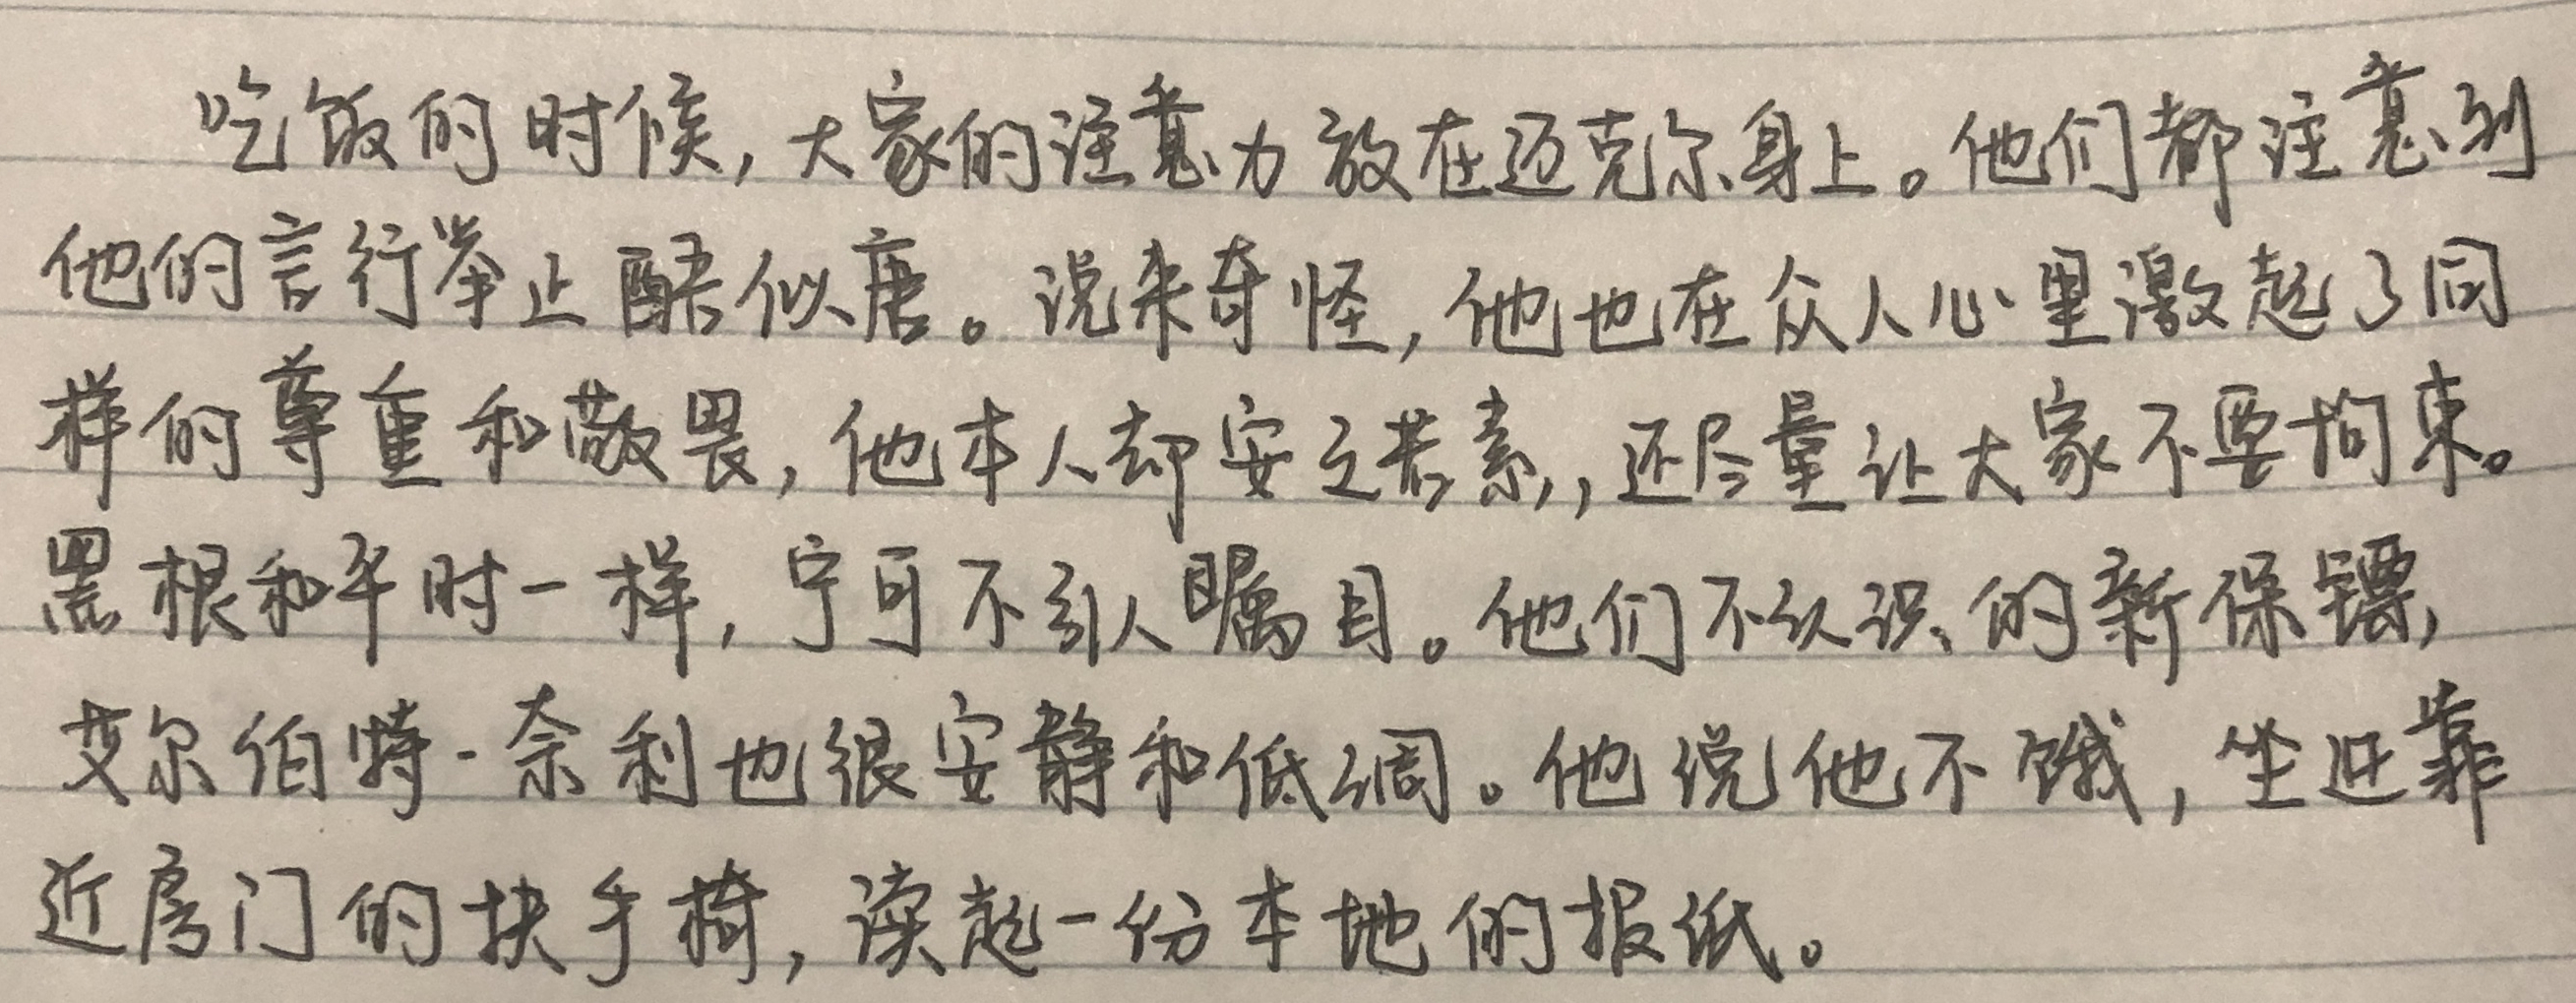 吃饭的时候,大家的注意力放在迈克尔身上。他们都注意到
他的言行举止酷似唐。说来奇怪,他也在众人心里激起了同
样的尊重和敬畏,他本人却安之若素,还尽量让大家不要拘束。
黑根和平时一样,宁可不引人瞩目。他们不认识的新保镖,
艾尔伯特-奈利也很安静和低调。他说他不饿,坐进靠
近房门的扶手椅,读起一份本地的报纸。